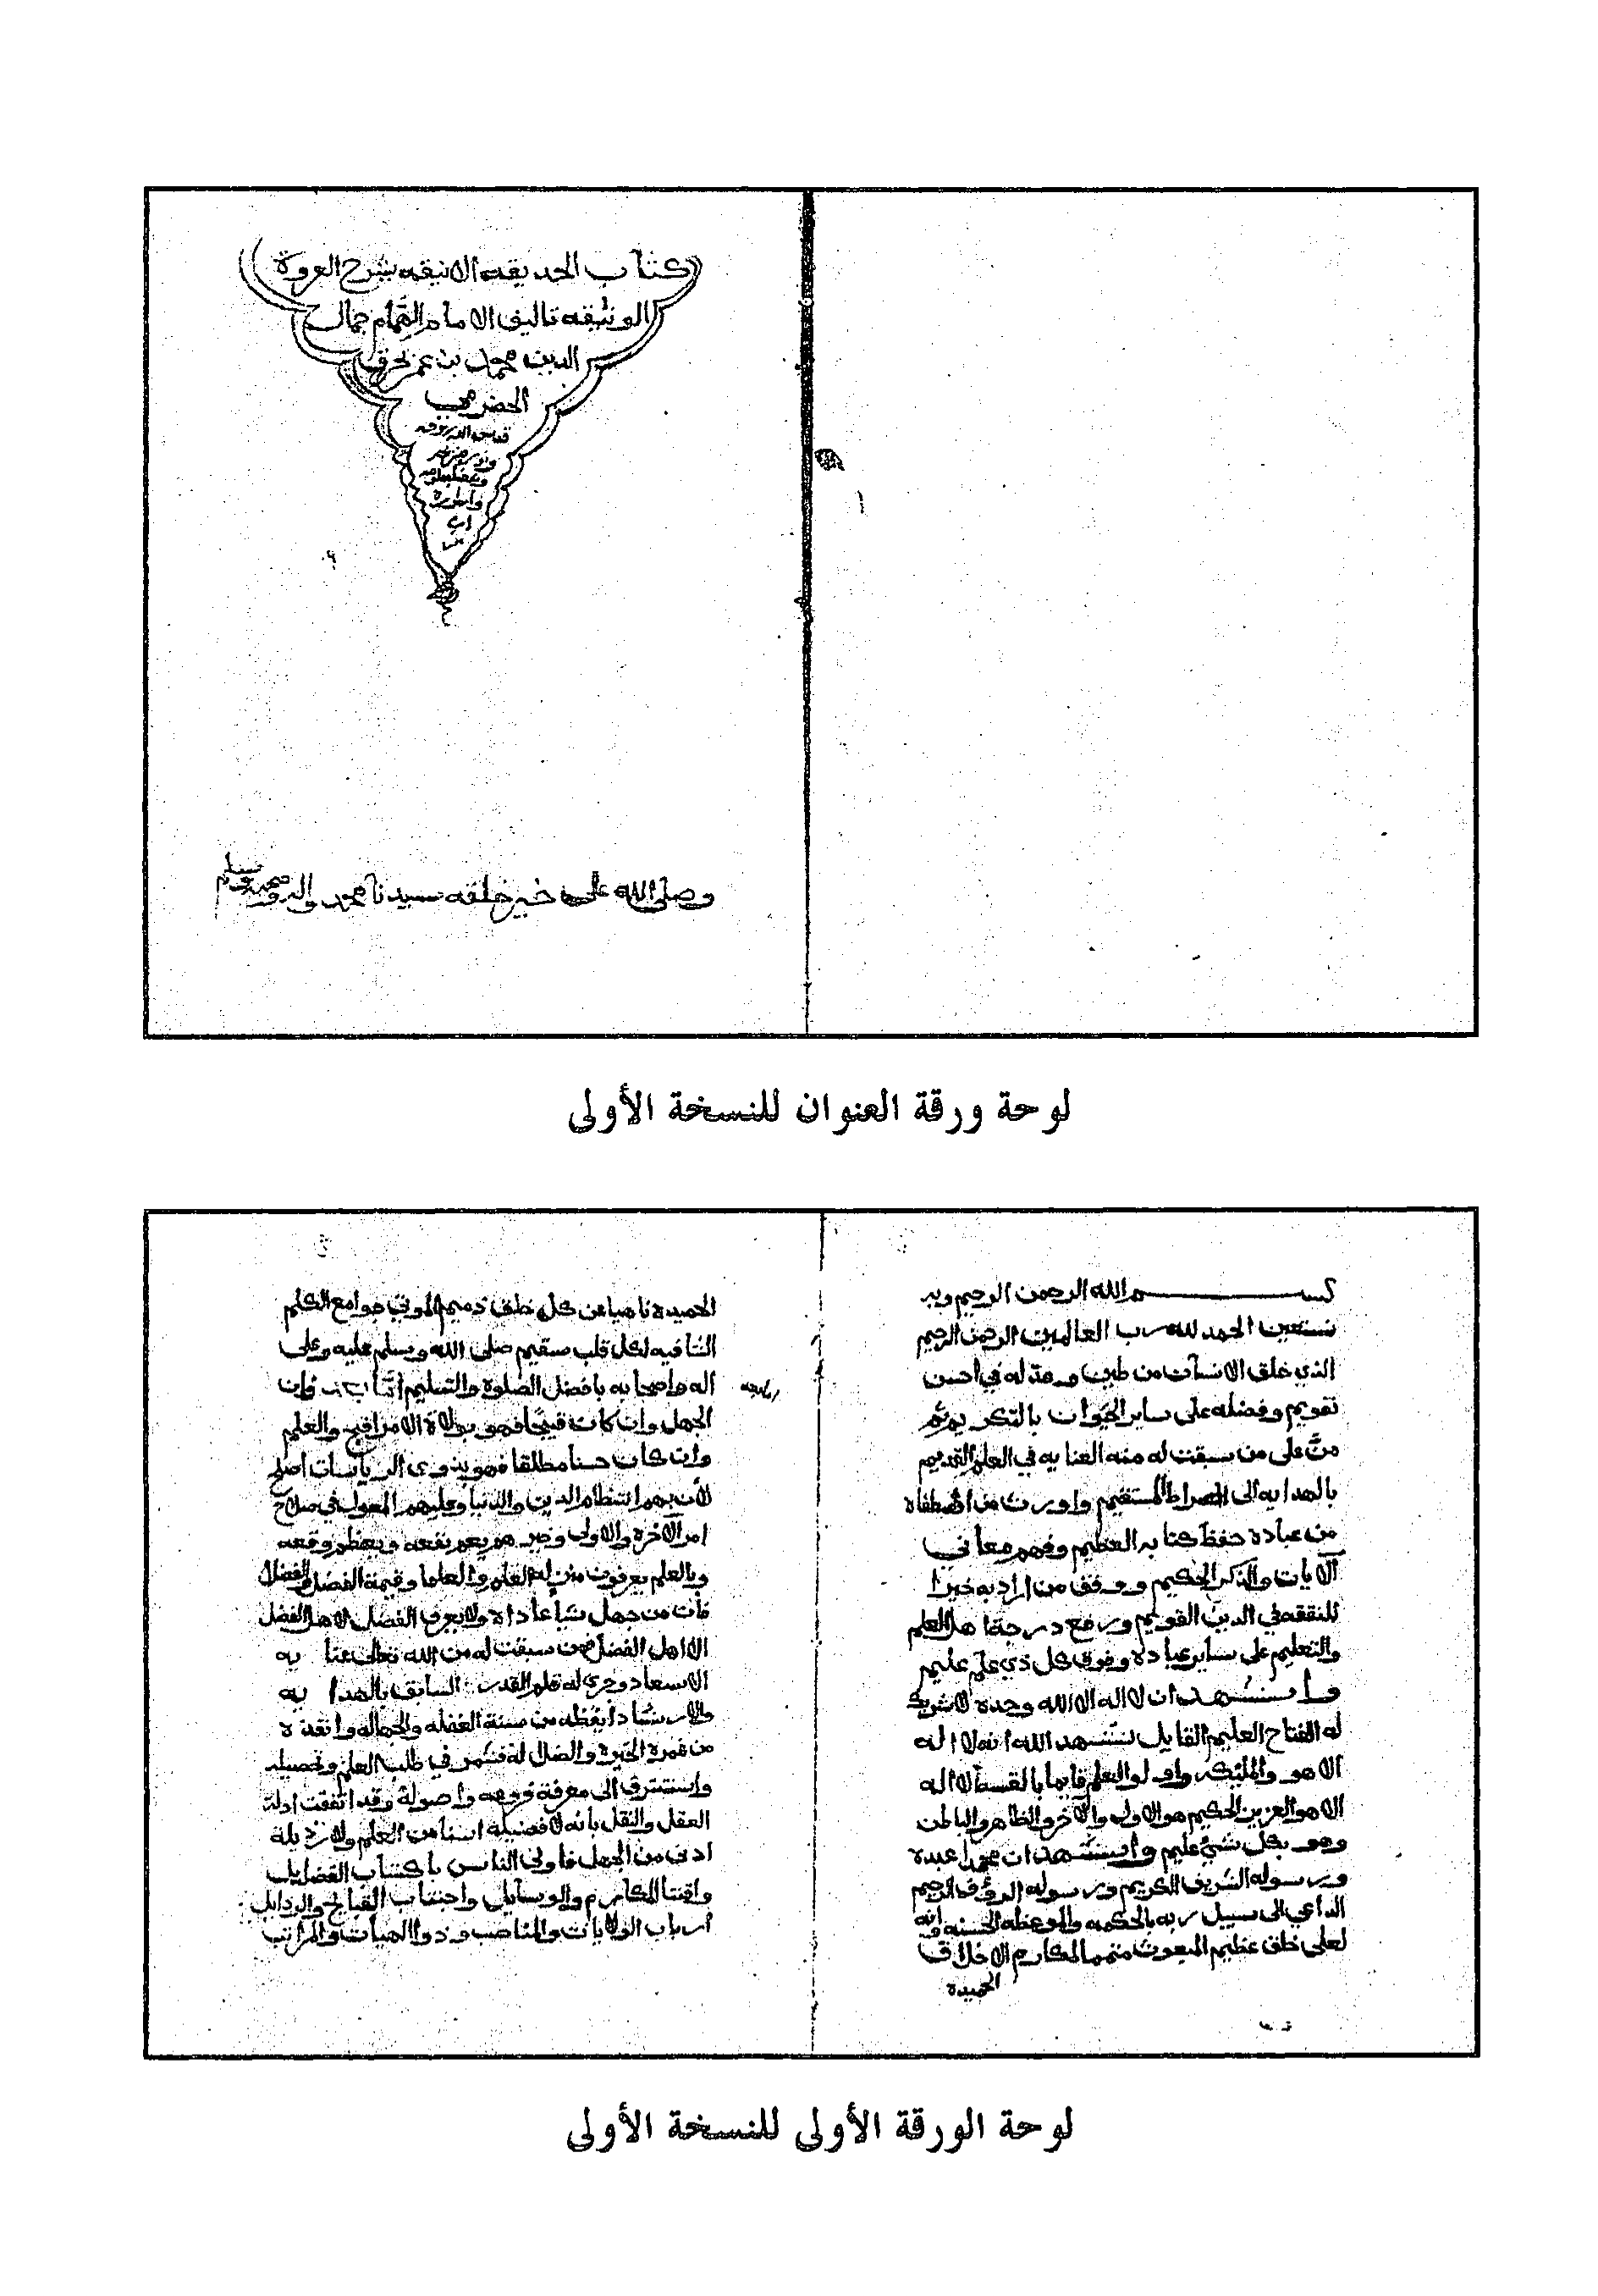 كتاب الحديقه الانيقه بشرح العروة
الوثيقه تاليف الامام جمال
الدين محمد بن عمر بحرق
الحضرمي
وصلى الله على خير خلقه سيدنا محمد واله وصحبه وسلم
لوحة ورقة العنوان للنسخة الأولى
بسم الله الرحمن الرحيم وبه
نستعين الحمد لله رب العالمين الرحمن الرحيم
الذي خلق الانسان من طين وعدله في احسن
تقويم وفضله على ساير الحيوان بالتكريم ثم
من على من سبقت له منه العنايه في العلم القديم
بالهدايه الى الصراط المستقيم واورث من اصطفاه
من عباده حفظ كتابه العظيم وفهم معاني
الآيات والذكر الحكيم ووفق من اراد به خيرا
للتفقه في الدين القويم ورفع درجة اهل العلم
والتعليم على ساير عباده وفوق كل ذي علم عليم
واشهد ان لا اله الا الله وحده لا شريك
له الفتاح العليم القايل شهد الله انه لا اله
الا هو والمليكه واولو العلم قايما بالقسط لا اله
الا هو العزيز الحكيم هو الاول والآخر والظاهر والباطن
وهو بكل شيء عليم واشهد ان محمدا عبده
ورسوله الشريف الكريم ورسوله الرؤف الرحيم
الداعي الى سبيل ربه بالحكمه والموعظه الحسنه وانه
لعلى خلق عظيم المبعوث متمما لمكارم الاخلاق
الحميده
الحميده ناهيا عن كل خلق ذميم الموتى جوامع الكلم
الشافيه لكل قلب سقيم صلى الله وسلم عليه وعلى
اله واصحابه بافضل الصلوة والتسليم اما بعد فان
الجهل وان كان قبيحا فهو بولاة الامر اقبح والعلم
وان كان حسنا مطلقا فهو بذوي الرياسات اصلح
لأن بهم انتظام الدين والدنيا وعليهم المعول في صلاح
امر الآخرة والاولى وهم يعم نفعه ويعظم وقعه
وبالعلم يعرفون منزلة العلم والعلما وقيمة الفضل والفضلا
فان من جهل شيا عاداه ولا يعرف الفضل لاهل الفضل
الا اهل الفضل فمن سبقت له من الله تعالى عنايه
الاسعاد وجرى له قلم القدر السابق بالهدايه
والارشاد ايقظه من سنة الغفله والجهاله وانقذه
من غمرة الحيرة والضلاله فشمر في طلب العلم وتحصيله
واستشرف الى معرفة فروعه واصوله وقد اتفقت ادلة
العقل والنقل بانه لا فضيلة اسنا من العلم ولا رذيلة
ادنى من الجهل فاولى الناس باكتساب الفضايل
واقتنا المكارم والوسايل واجتناب القبايح والرذايل
ارباب الولايات والمناصب وذوا الهيات والمراتب
لوحة الورقة الأولى للنسخة الأولى